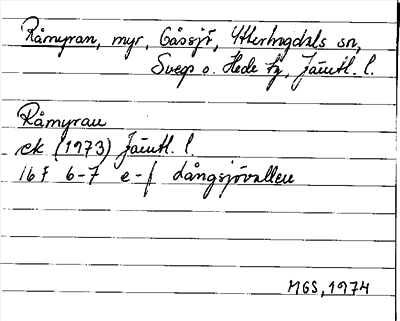 Råmyran, myr, Gåssjö, Ytterhogdals sn,
Svegs o. Hede tg, Jämtl. l.
Råmyran
ek (1973) Jämtl. l.
16F 6-7 e-f Långsjövallen
MGS, 1974